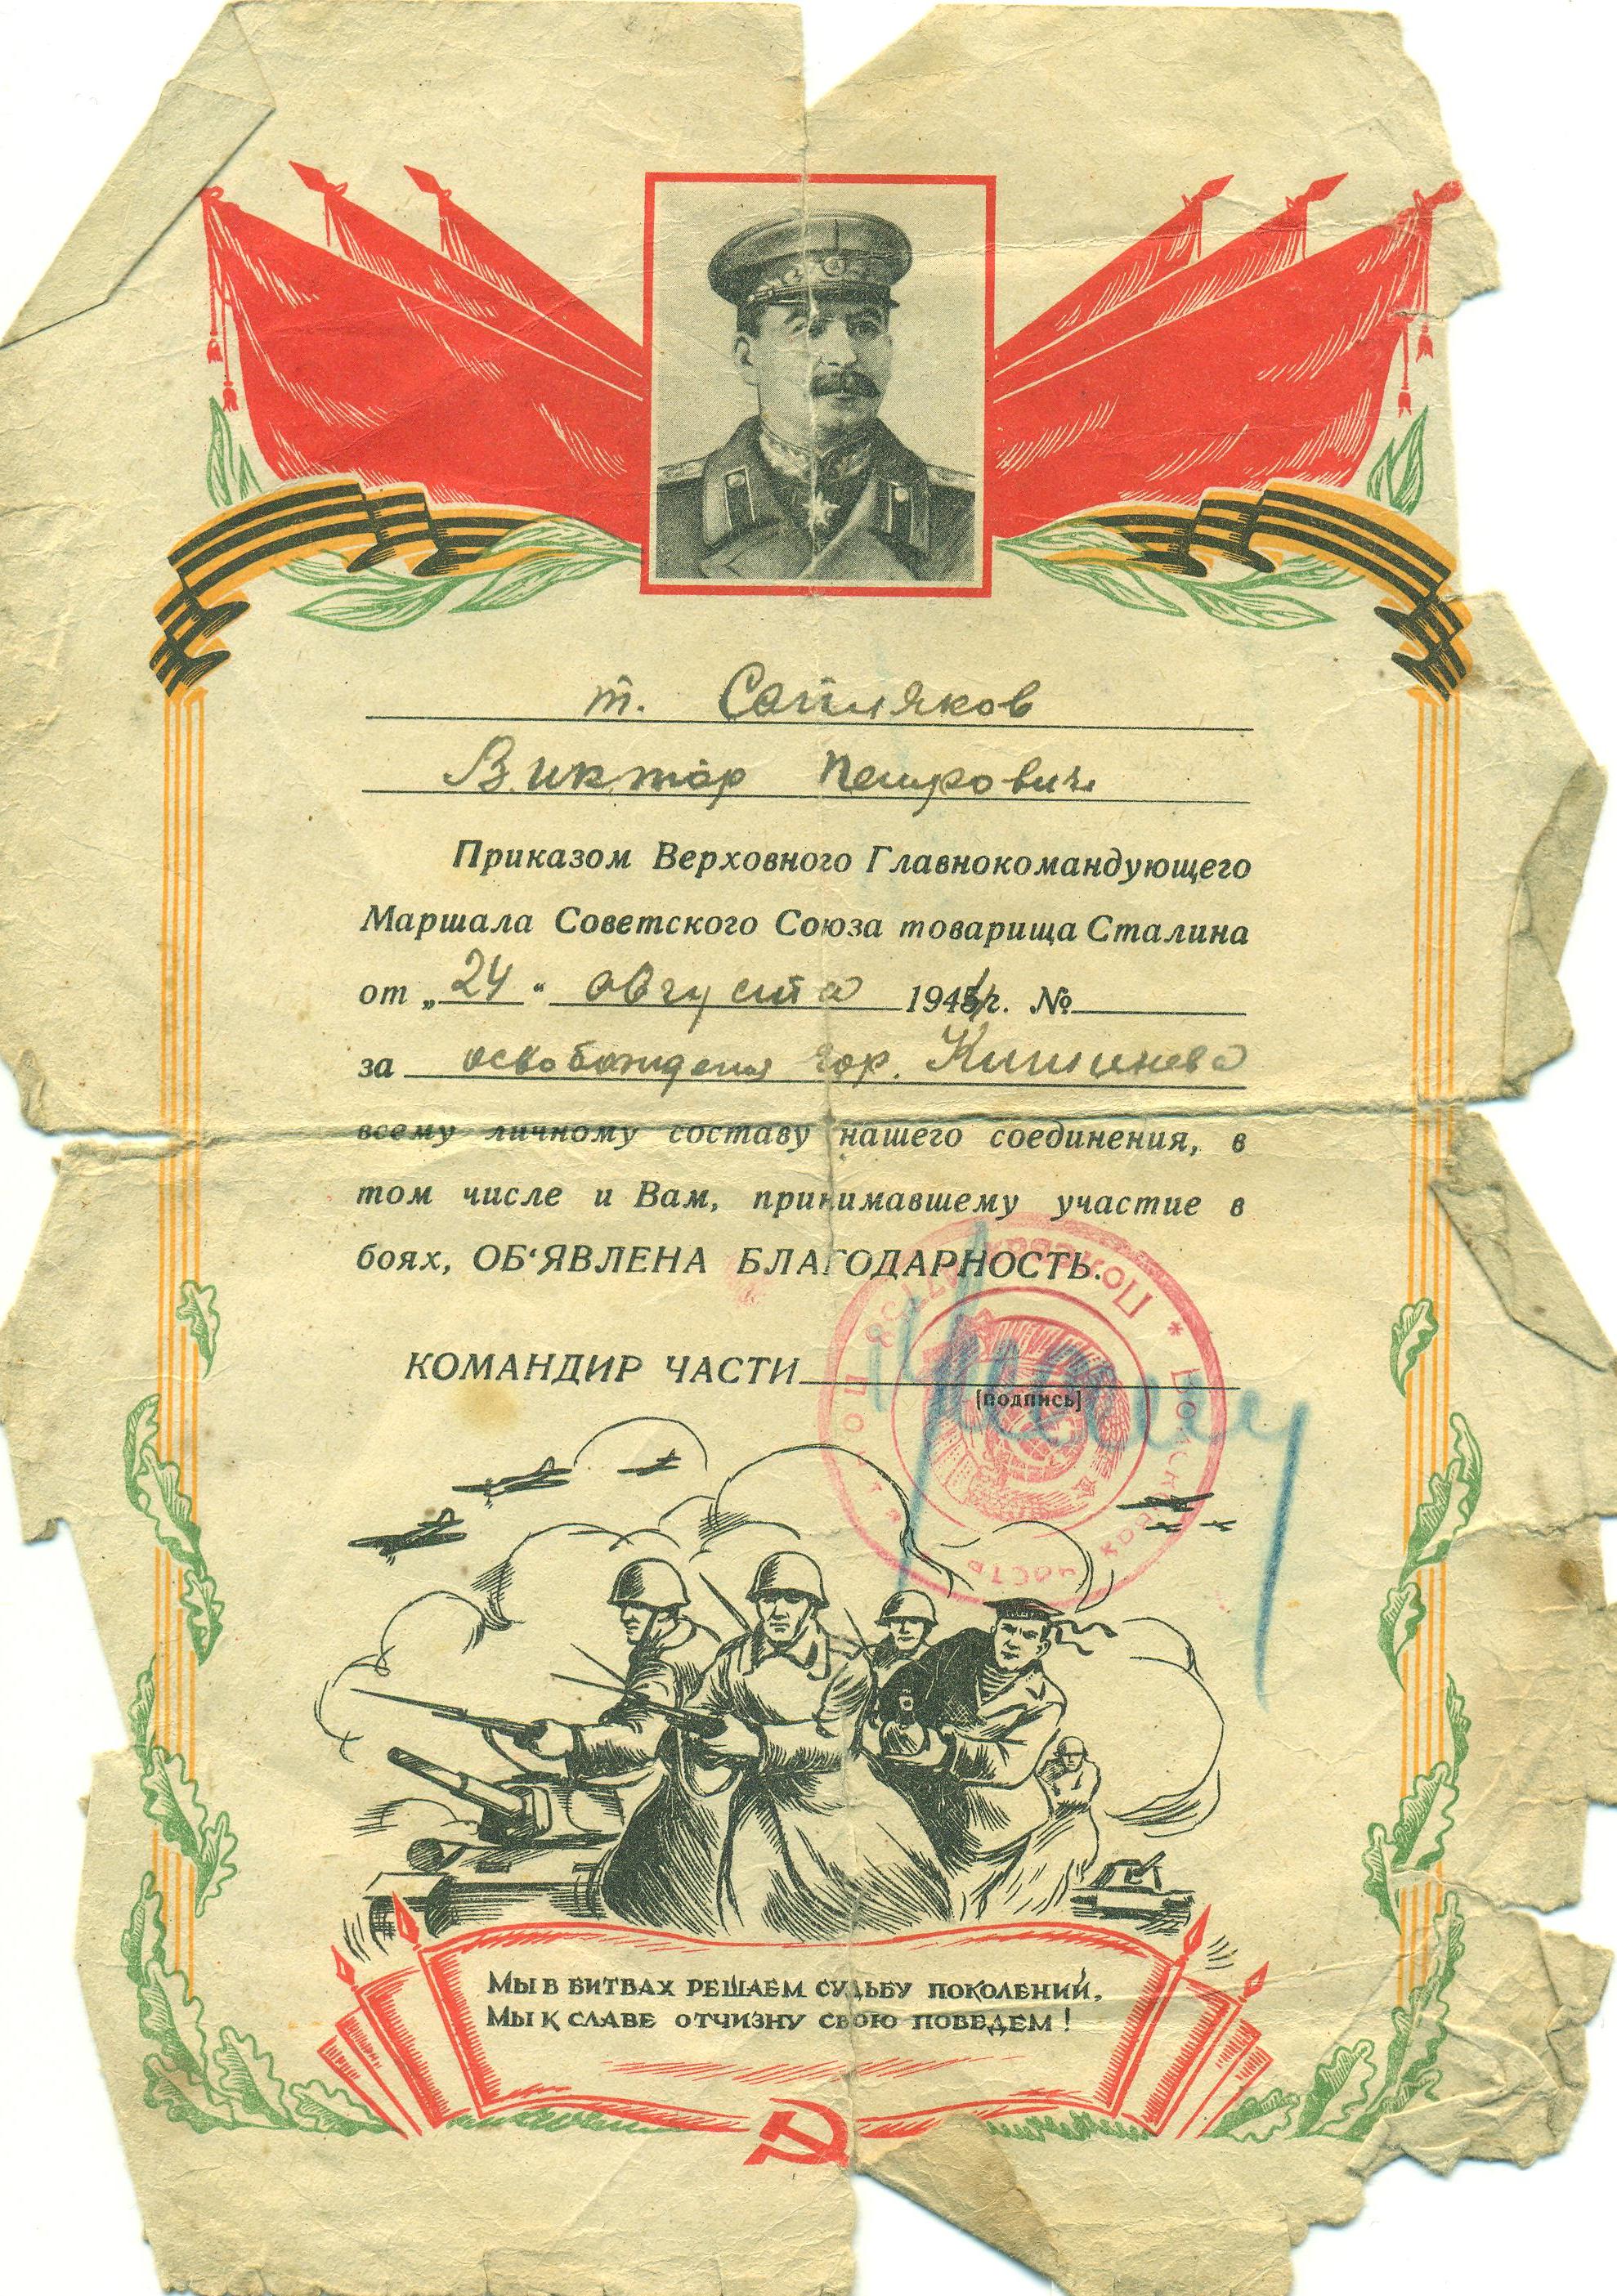 т. Сапляков
Виктор Петрович
Приказом Верховного Главнокомандующего
Маршала Советского Союза товарища Сталина
от „24“ августа 1944г. №
за освобождения гор. Кишинева
всему личному составу нашего соединения, в
том числе и Вам, принимавшему участие в
боях, ОБ‘ЯВЛЕНА БЛАГОДАРНОСТЬ.
КОМАНДИР ЧАСТИ
[подпись]
Полевая почта
Войсковая часть
МЫ В БИТВАХ РЕШАЕМ СУДЬБУ ПОКОЛЕНИЙ,
МЫ К СЛАВЕ ОТЧИЗНУ СВОЮ ПОВЕДЕМ!